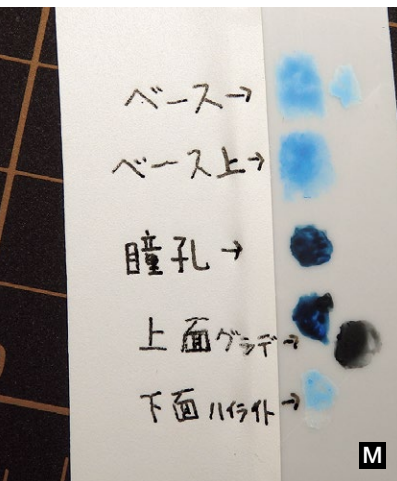 ベース→
ベース上→
瞳孔→
上面グラデ→
下面ハイライト→
M